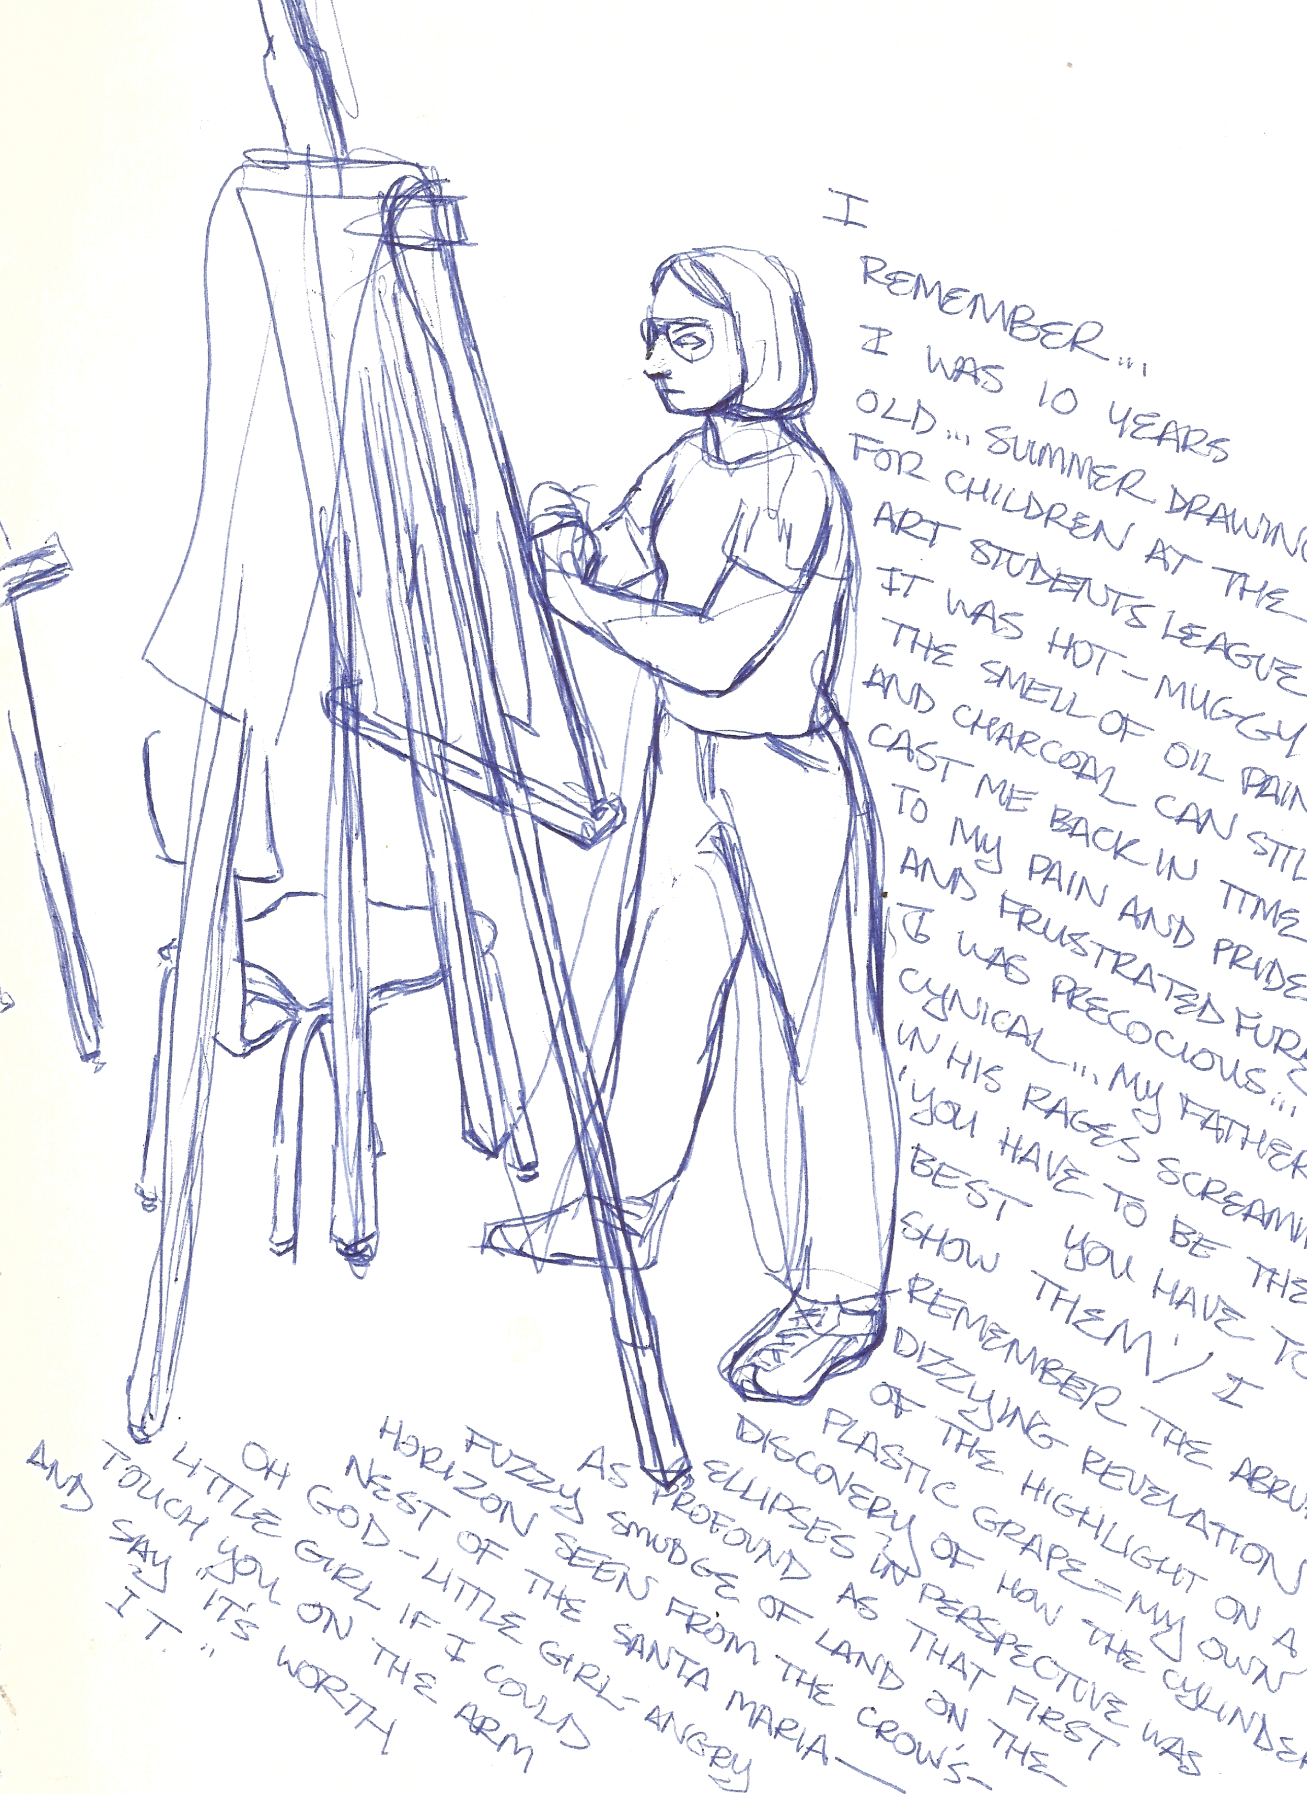 I
REMEMBER...
I WAS 10 YEARS
OLD... SUMMER DRAWING
FOR CHILDREN AT THE
ART STUDENTS LEAGUE
IT WAS HOT — MUGGY
THE SMELL OF OIL PAIN
AND CHARCOAL CAN STIL
CAST ME BACK IN TIME
TO MY PAIN AND PRIDE
AND FRUSTRATED
I WAS PRECOCIOUS...
CYNICAL... MY FATHER
IN HIS RAGES SCREAMIN
'YOU HAVE TO BE THE
BEST YOU HAVE TO
SHOW THEM!' I
REMEMBER THE ABRU
DIZZYING REVELATION
OF THE HIGHLIGHT ON A
PLASTIC GRAPE = MY OWN
DISCOVERY OF HOW THE CYLINDER
ELLIPSES IN PERSPECTIVE WAS
AS PROFOUND AS THAT FIRST
FUZZY SMUDGE OF LAND ON THE
HORIZON SEEN FROM THE CROW'S-
NEST OF THE SANTA MARIA —
OH GOD - LITTLE GIRL - ANGRY
LITTLE GIRL IF I COULD
TOUCH YOU ON THE ARM
AND SAY "IT'S WORTH
IT."